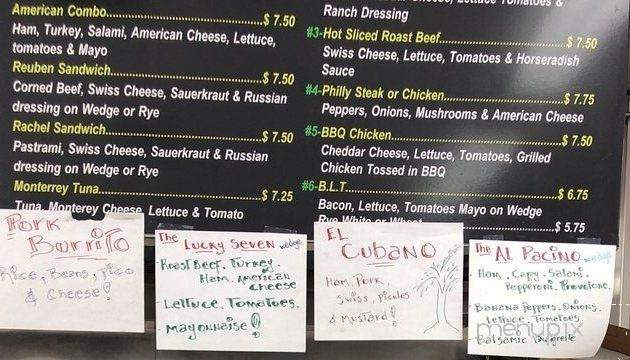 American Combo $ 7.50
Ham, Turkey, Salami, American Cheese, Lettuce,
tomatoes & Mayo
Reuben Sandwich $ 7.50
Corned Beef, Swiss Cheese, Sauerkraut & Russian
dressing on Wedge or Rye
Rachel Sandwich $ 7.50
Pastrami, Swiss Cheese, Sauerkraut & Russian
dressing on Wedge or Rye
Monterrey Tuna $ 7.25
Tuna, Monterey Cheese, Lettuce & Tomato
Cheese, Lettuce Tomatoes &
Ranch Dressing
#3-Hot Sliced Roast Beef $ 7.50
Swiss Cheese, Lettuce, Tomatoes & Horseradish
Sauce
#4-Philly Steak or Chicken $ 7.75
Peppers, Onions, Mushrooms & American Cheese
#5-BBQ Chicken $ 7.50
Cheddar Cheese, Lettuce, Tomatoes, Grilled
Chicken Tossed in BBQ
#6-B.L.T. $ 6.75
Bacon, Lettuce, Tomatoes Mayo on Wedge
Rye White or Wheat
$ 5.75
Pork
Burrito
Rice, Beans, Pico
& Cheese!
The Lucky Seven wedge
Roast Beef. Turkey.
Ham. American
Cheese
Lettuce. Tomatoes.
Mayonnaise!
EL
CUBANO
Ham, Pork,
Swiss, Pickles
& Mustard!
The AL Pacino wedge
Ham, Capy, Salami,
Pepperoni, Provolone.
Banana Peppers, Onions,
Lettuce, Tomatoes.
Balsamic
menupix